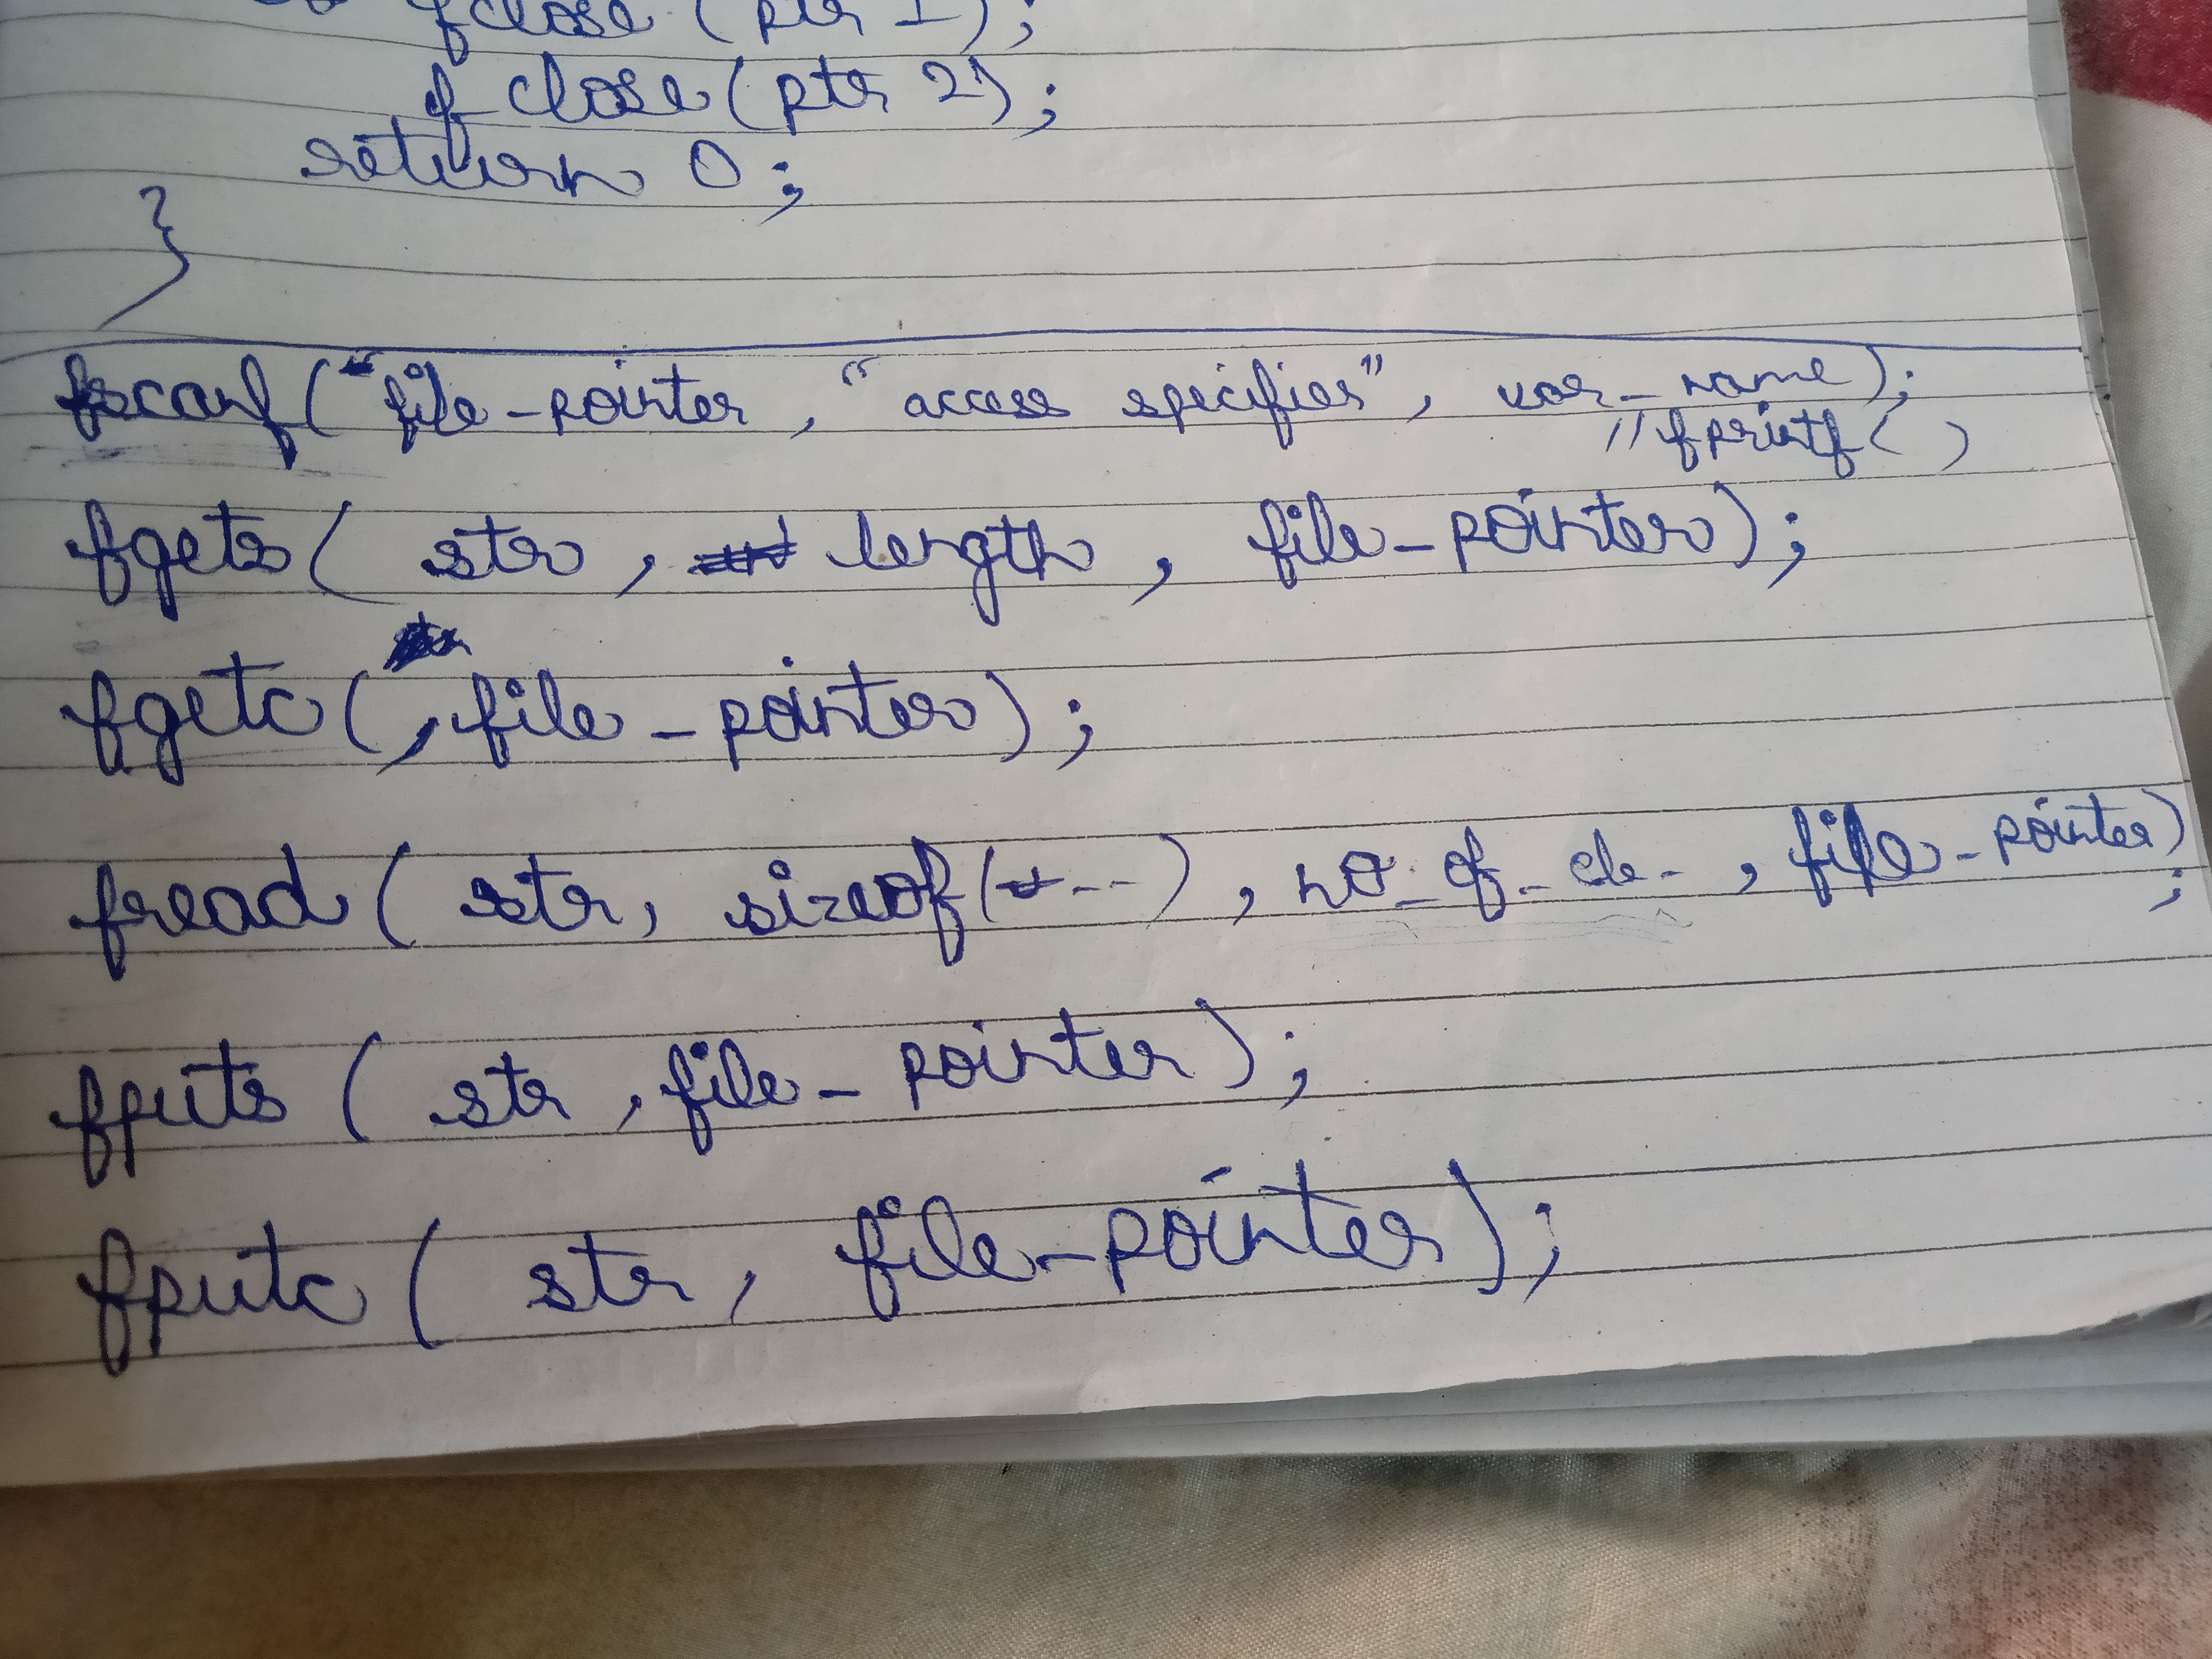 fclose (ptr 1);
fclose (ptr 2);
return 0;
}
fscanf( file-pointer, "access specifier", var_name);
//fprintf( )
fgets( str, length, file-pointer);
fgetc( , file-pointer);
fread( str, sizeof(---), no_of_ele-, file-pointer)
;
fputs (str, file-pointer);
fputc ( str, file-pointer);